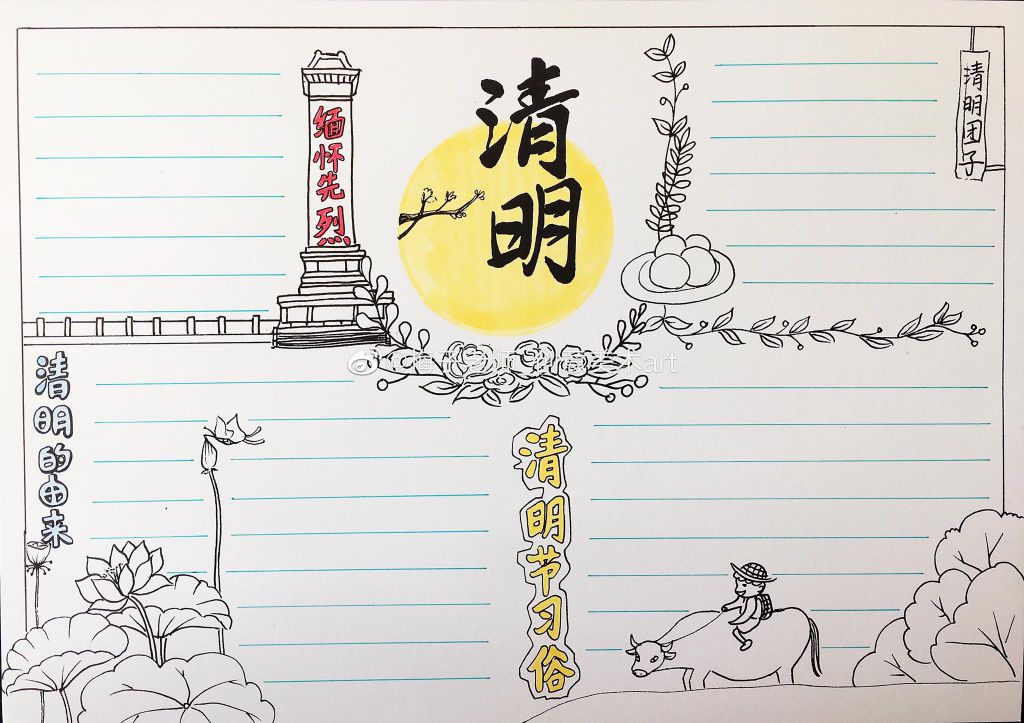 清明
缅怀先烈
清明团子
清明的由来
清明节习俗